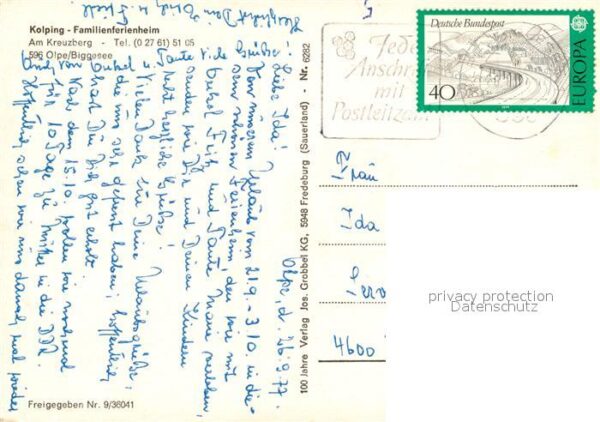 Kolping - Familienferienheim
Am Kreuzberg - Tel. (0 27 61) 51 05
596 Olpe/Biggesee
Olpe, d. 26.9.77.
Liebe Ida!
Von unserem Urlaub vom 21.9. - 3.10. in die-
sem schönen Ferienheim, den wir mit
Onkel Fritz und Tante Maria verleben,
senden wir Dir und Deinen Kindern
recht herzliche Grüße!
Vielen Dank für Deine Urlaubsgrüße,
die uns sehr gefreut haben; hoffentlich
hast Du Dich gut erholt.
Nach dem 15.10. wollen wir nochmal
für 10 Tage zu in die DDR.
Hoffentlich sehen wir uns danach mal wieder
von Onkel u. Tante viele Grüße!
Herzlichst
100 Jahre Verlag Jos. Grobbel KG, 5948 Fredeburg (Sauerland) - Nr. 6282
Freigegeben Nr. 9/36041
Jede
Anschrift
mit
Postleitzahl
Deutsche Bundespost
40
EUROPA
Frau
Ida
4600
privacy protection
Datenschutz